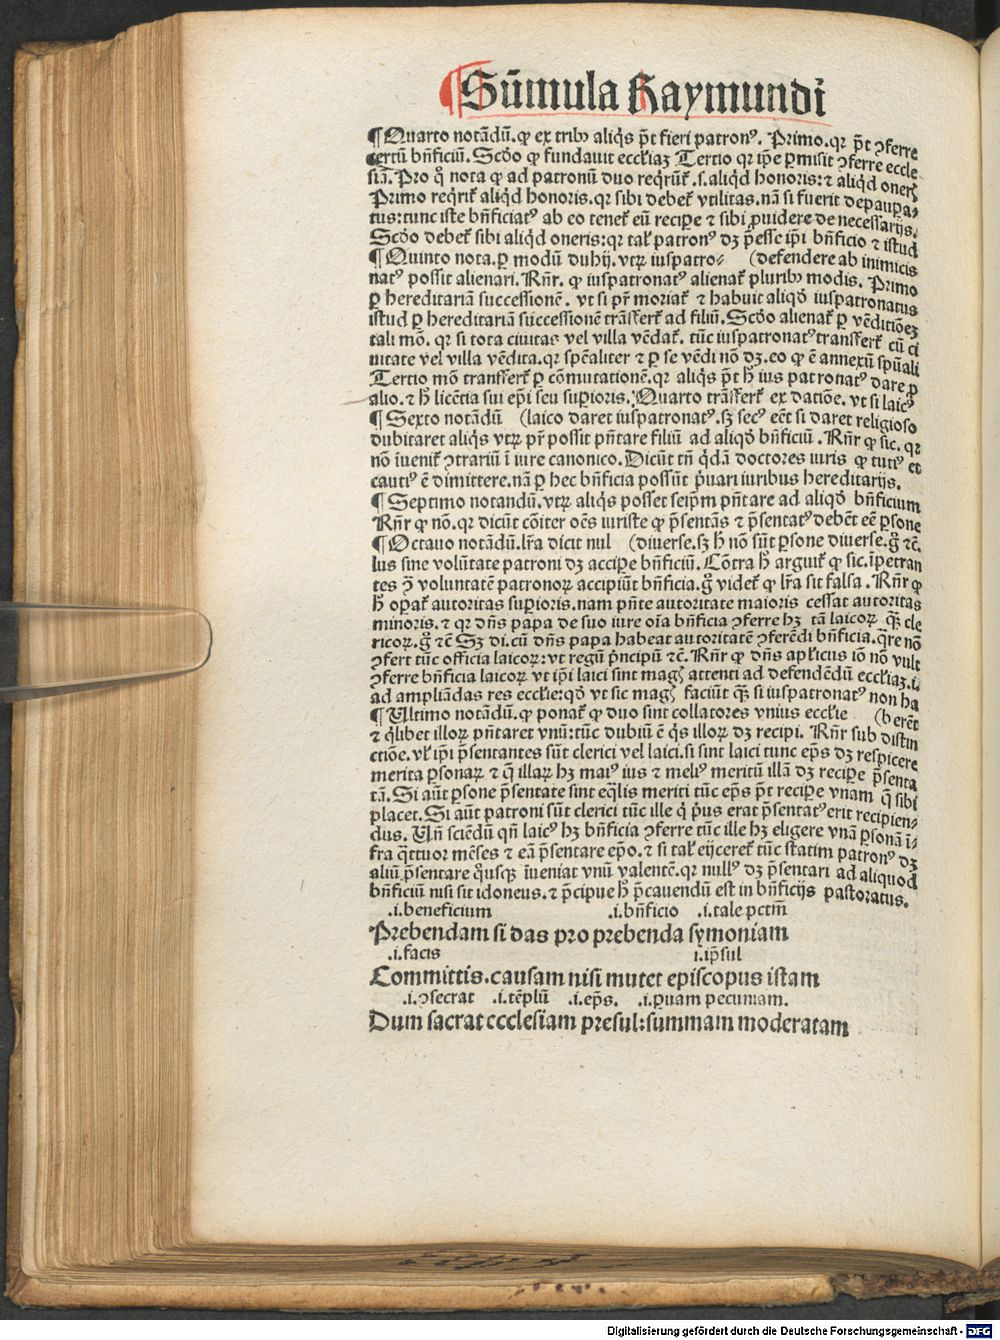 ¶Sūmula Raymundi
¶Quarto notādū. ꝙ ex tribꝰ aliq̄s p̄t fieri patronꝰ. Primo. qꝛ p̄t ꝯferre
certū bn̄ficiū. Scd̄o ꝙ fundauit eccl̄iaꝫ Tertio qꝛ ip̄e ꝑmisit ꝯferre eccle
siā. Pro q̊ nota ꝙ ad patronū duo req̄rūt̄. s. aliq̄d honoris: ⁊ aliq̄d onerꝭ
Primo req̄rit̄ aliq̄d honoris. qꝛ sibi debet̄ vtilitas. nā si fuerit depauꝑa⸗
tus: tunc iste bn̄ficiatꝰ ab eo tenet̄ eū reciꝑe ⁊ sibi ꝓuidere de necessarijs.
Scd̄o debet̄ sibi aliq̄d oneris: qꝛ tal̄ patronꝰ dꝫ p̄esse ip̄i bn̄ficio ⁊ istud
¶Quinto nota. ꝑ modū dubij. vtꝝ iuspatro⸗ (defendere ab inimicis
natꝰ possit alienari. Rn̄r. ꝙ iuspatronatꝰ alienat̄ pluribꝰ modis. Primo
ꝑ hereditariā successionē. vt si pr̄ moriat̄ ⁊ habuit aliqd̄ iuspatronatus
istud ꝑ hereditariā successionē trāsfert̄ ad filiū. Scd̄o alienat̄ ꝑ vēditiōeꝫ
tali mō. qꝛ si tota ciuitas vel villa vēdat̄. tūc iuspatronatꝰ transfert̄ cū ci
uitate vel villa vēdita. qꝛ spēaliter ⁊ ꝑ se vēdi nō dꝫ. eo ꝙ ē annexū spūali
Tertio mō transfert̄ ꝑ cōmutationē. qꝛ aliq̄s p̄t h̄ ius patronatꝰ dare ꝓ
alio. ⁊ h̄ licētia sui ep̄i seu suꝑioris. Quarto trāsfert̄ ex datiōe. vt si laicꝰ
¶Sexto notādū (laico daret iuspatronatꝰ. sꝫ secꝰ eēt si daret religioso
dubitaret aliq̄s vtꝝ pr̄ possit p̄ntare filiū ad aliqd̄ bn̄ficiū. Rn̄r ꝙ sic. qꝛ
nō īuenit̄ ꝯtrariū ī iure canonico. Dicūt tn̄ q̄dā doctores iuris ꝙ tutiꝰ et
cautiꝰ ē dimittere. nā ꝑ hec bn̄ficia possūt p̄uari iuribus hereditarijs.
¶Septimo notandū. vtꝝ aliq̄s posset seip̄m p̄ntare ad aliqd̄ bn̄ficium
Rn̄r ꝙ nō. qꝛ dicūt cōiter oēs iuriste ꝙ p̄sentās ⁊ p̄sentatꝰ debēt eē ꝑsone
¶Octauo notādū. lr̄a dicit nul (diuerse. sꝫ h̄ nō sūt ꝑsone diuerse. g̊ ⁊c̄.
lus sine volūtate patroni dꝫ acciꝑe bn̄ficiū. Cōtra h̄ arguit̄ ꝙ sic. īpetran
tes ꝯ̄ voluntatē patronoꝝ accipiūt bn̄ficia. g̊ videt̄ ꝙ lr̄a sit falsa. Rn̄r ꝙ
h̄ oꝑat̄ autoritas suꝑioris. nam p̄nte autoritate maioris cessat autoritas
minoris. ⁊ qꝛ dn̄s papa de suo iure oīa bn̄ficia ꝯferre hꝫ tā laicoꝝ qꝫ̄ cle
ricoꝝ. g̊ ⁊c̄ Sꝫ di. cū dn̄s papa habeat autoritatē ꝯferēdi bn̄ficia. q̄re nō
ꝯfert tūc officia laicoꝝ: vt regū p̄ncipū ⁊c̄. Rn̄r ꝙ dn̄s apl̄icus iō nō vult
ꝯferre bn̄ficia laicoꝝ vt ip̄i laici sint magꝭ attenti ad defendēdū eccl̄iaꝫ. ⁊
ad ampliādas res eccl̄ie: qd̄ vt sic magꝭ faciūt qꝫ̄ si iuspatronatꝰ non ha
¶Ultimo notādū. ꝙ ponat̄ ꝙ duo sint collatores vnius eccl̄ie (berēt
⁊ q̄libet illoꝝ p̄ntaret vnū: tūc dubiū ē q̄s illoꝝ dꝫ recipi. Rn̄r sub distin
ctiōe. vl̄ ip̄i p̄sentantes sūt clerici vel laici. si sint laici tunc ep̄s dꝫ respicere
merita ꝑsonaꝝ ⁊ q̄ illaꝝ hꝫ maiꝰ ius ⁊ meliꝰ meritū illā dꝫ reciꝑe p̄senta
tā. Si aūt ꝑsone p̄sentate sint eq̄lis meriti tūc ep̄s p̄t reciꝑe vnam q̄ sibi
placet. Si aūt patroni sūt clerici tūc ille q̄ p̄us erat p̄sentatꝰ erit recipien⸗
dus. Vn̄ sciēdū qn̄ laicꝰ hꝫ bn̄ficia ꝯferre tūc ille hꝫ eligere vnā ꝑsonā ī⸗
fra q̄ttuor mēses ⁊ eā p̄sentare ep̄o. ⁊ si tal̄ eijceret̄ tūc statim patronꝰ dꝫ
aliū p̄sentare q̄usqꝫ īueniat vnū valentē. qꝛ nullꝰ dꝫ p̄sentari ad aliquod
bn̄ficiū nisi sit idoneus. ⁊ p̄cipue h̄ p̄cauendū est in bn̄ficijs pastoratus.
.i. beneficium .i. bn̄ficio .i. tale pctm̄
Prebendam si das pro prebenda symoniam
.i. facis i. ip̄sul
Committis. causam nisi mutet episcopus istam
.i. ꝯsecrat .i. tēplū .i. ep̄s. .i. ꝑuam pecuniam.
Dum sacrat ecclesiam presul: summam moderatam
Digitalisierung gefördert durch die Deutsche Forschungsgemeinschaft - DFG